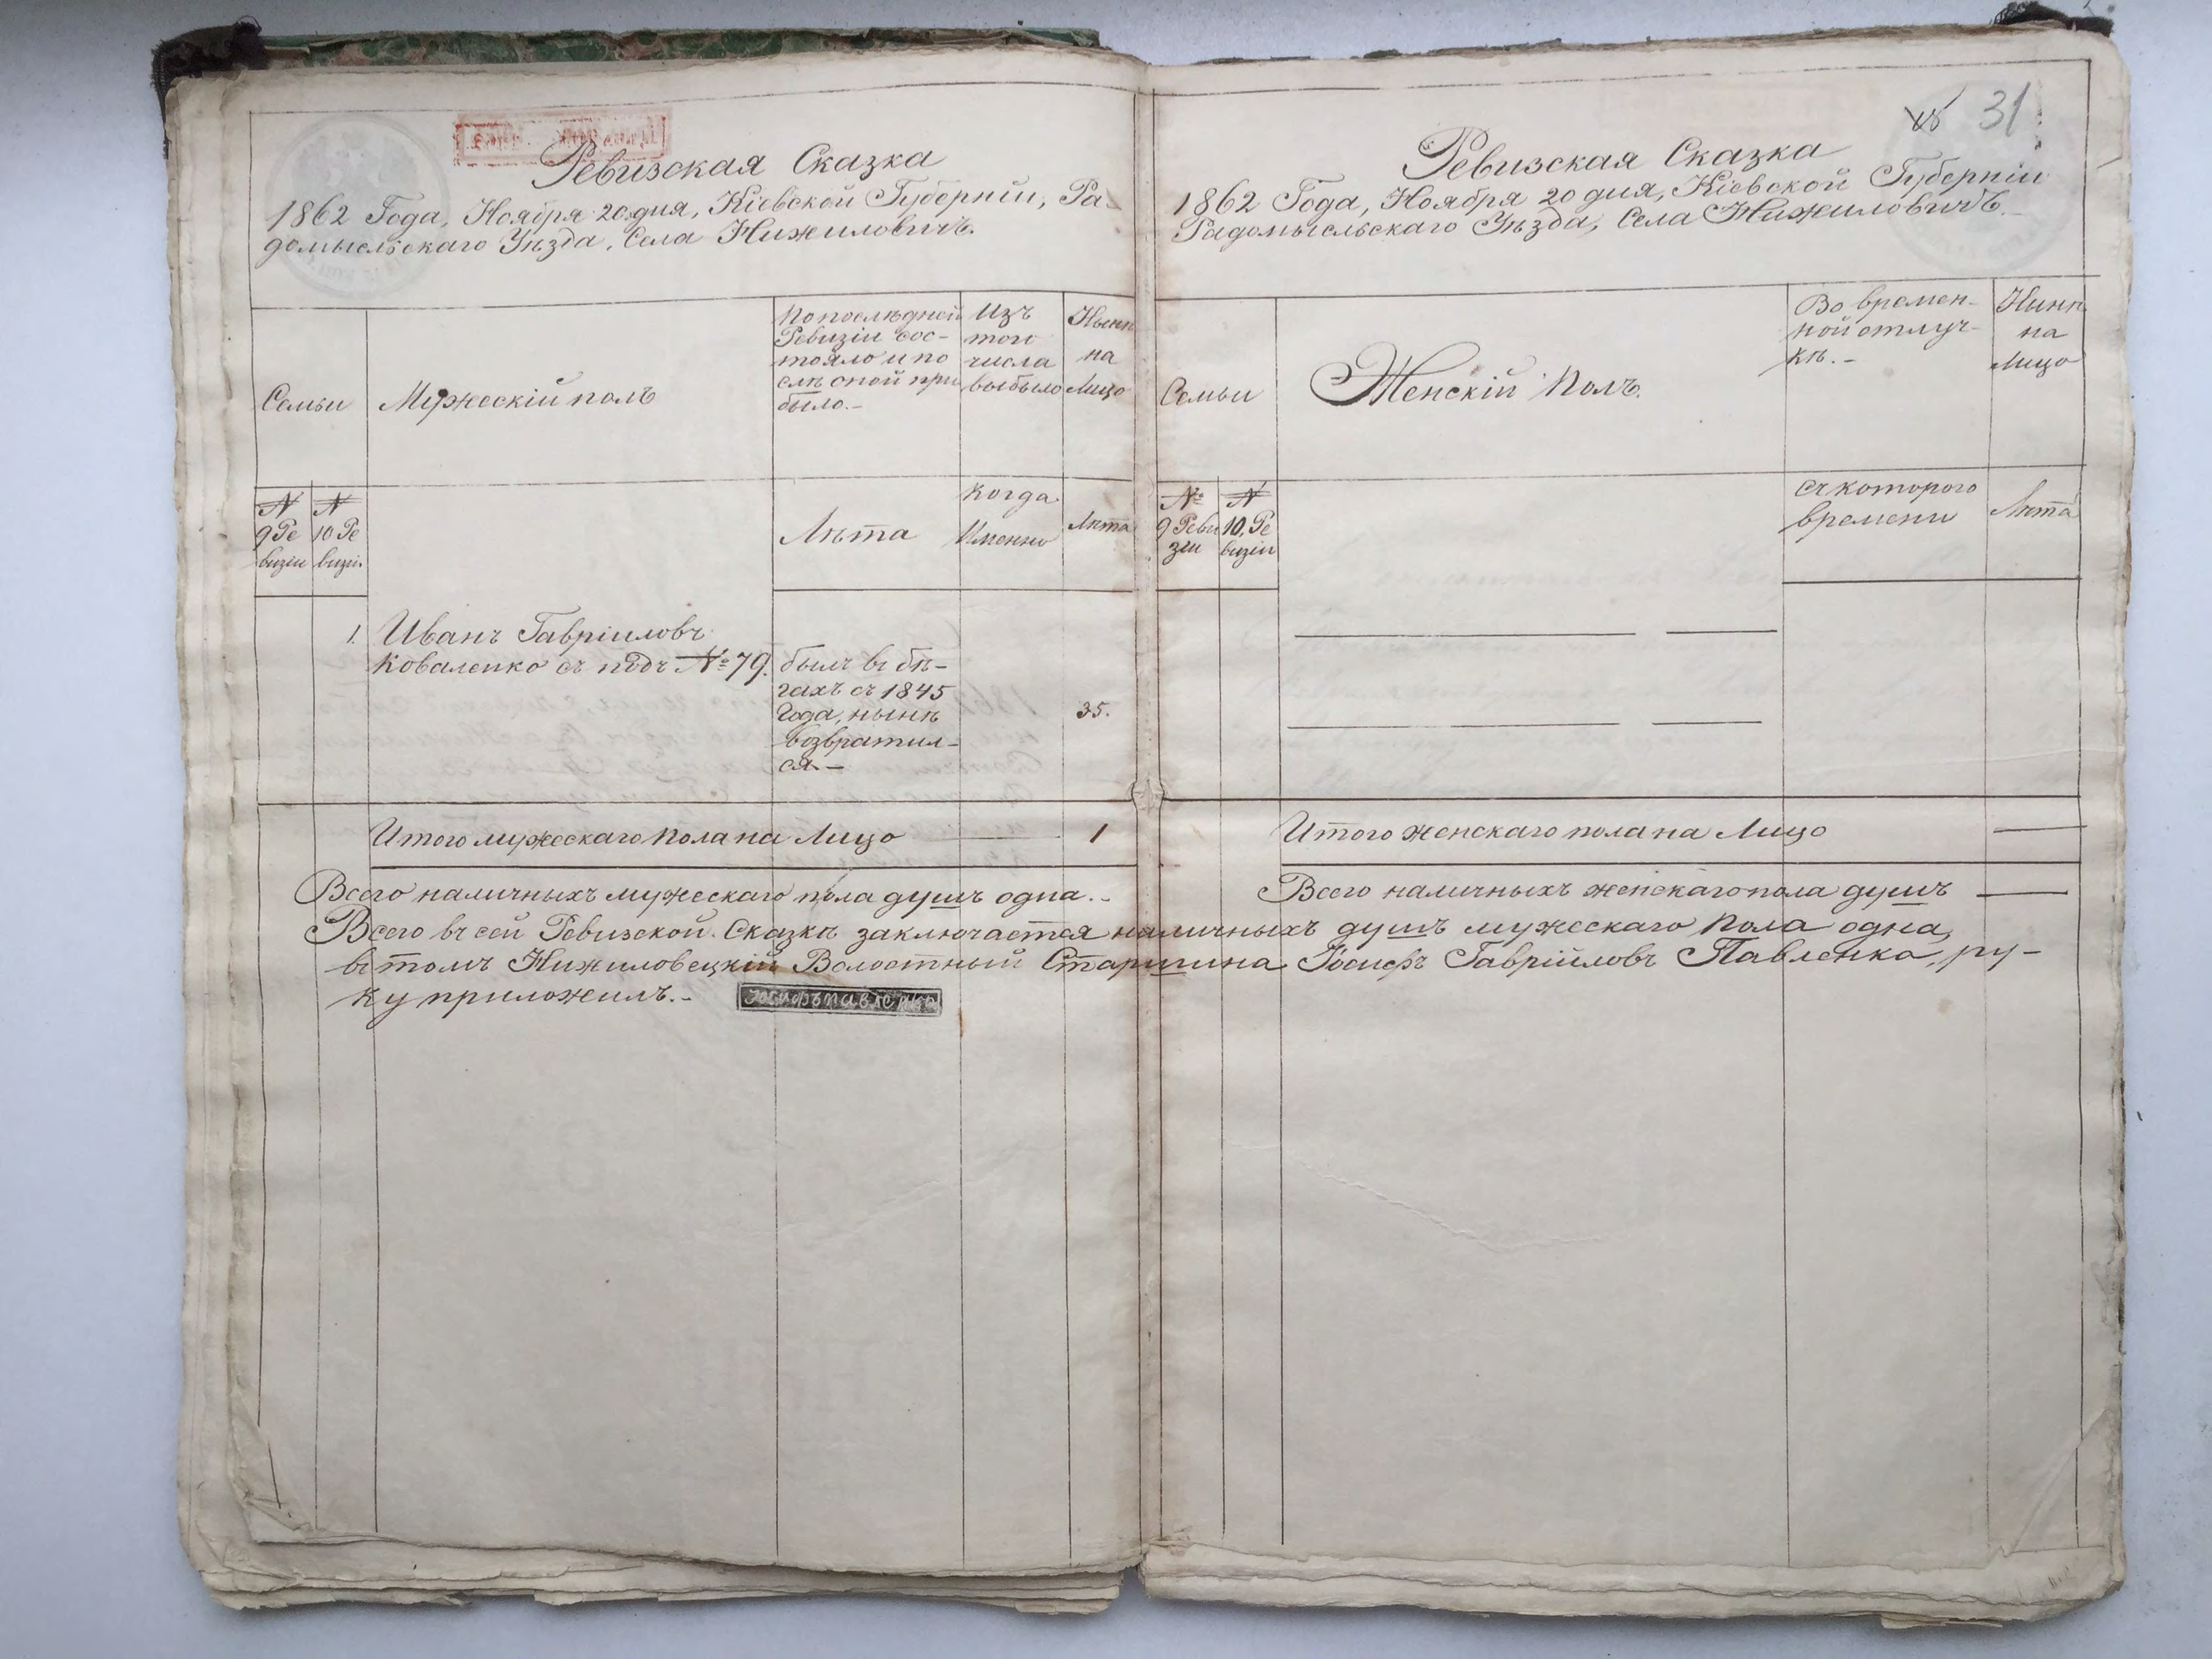 Ревизская Сказка
1862 Года, Ноября 20 дня, Кіевской Губерніи, Ра-
домысльскаго Уѣзда, Села Нижиловичъ.
Семьи
Мужескій полъ
По послѣдней
Ревизіи сос-
тояло и по
слѣ оной при
было.-
Изъ
того
числа
выбыло
Нынѣ
на
Лицо
№
9 Ре
визіи
№
10 Ре
визіи
Лѣта
Когда
Именно
Лѣта
1. Иванъ Гавріиловъ
Коваленко съ подъ №79.
былъ въ бѣ-
гахъ съ 1845
Года, нынѣ
возвратил-
ся.-
35.
Итого мужескаго пола на Лицо 1
Всего наличныхъ мужескаго пола душъ одна.-
31
Ревизская Сказка
1862 Года, Ноября 20 дня, Кіевской Губерніи
Радомысльскаго Уѣзда, Села Нижиловичъ.
Семьи
Женскій Полъ.
Во времен-
ной отлуч-
кѣ.-
Нынѣ
на
Лицо
№
9 Реви
зіи
№
10, Ре
визіи
съ которого
времени
Лѣта
Итого женскаго пола на Лицо
Всего наличныхъ женскаго пола душъ
Всего въ сей Ревизской Сказкѣ заключается наличныхъ душъ мужескаго Пола одна,
въ томъ Нижиловецкій Волостный Старшина Іосифъ Гавріиловъ Павленко, ру-
ку приложилъ.-
Іосифъ Павленко